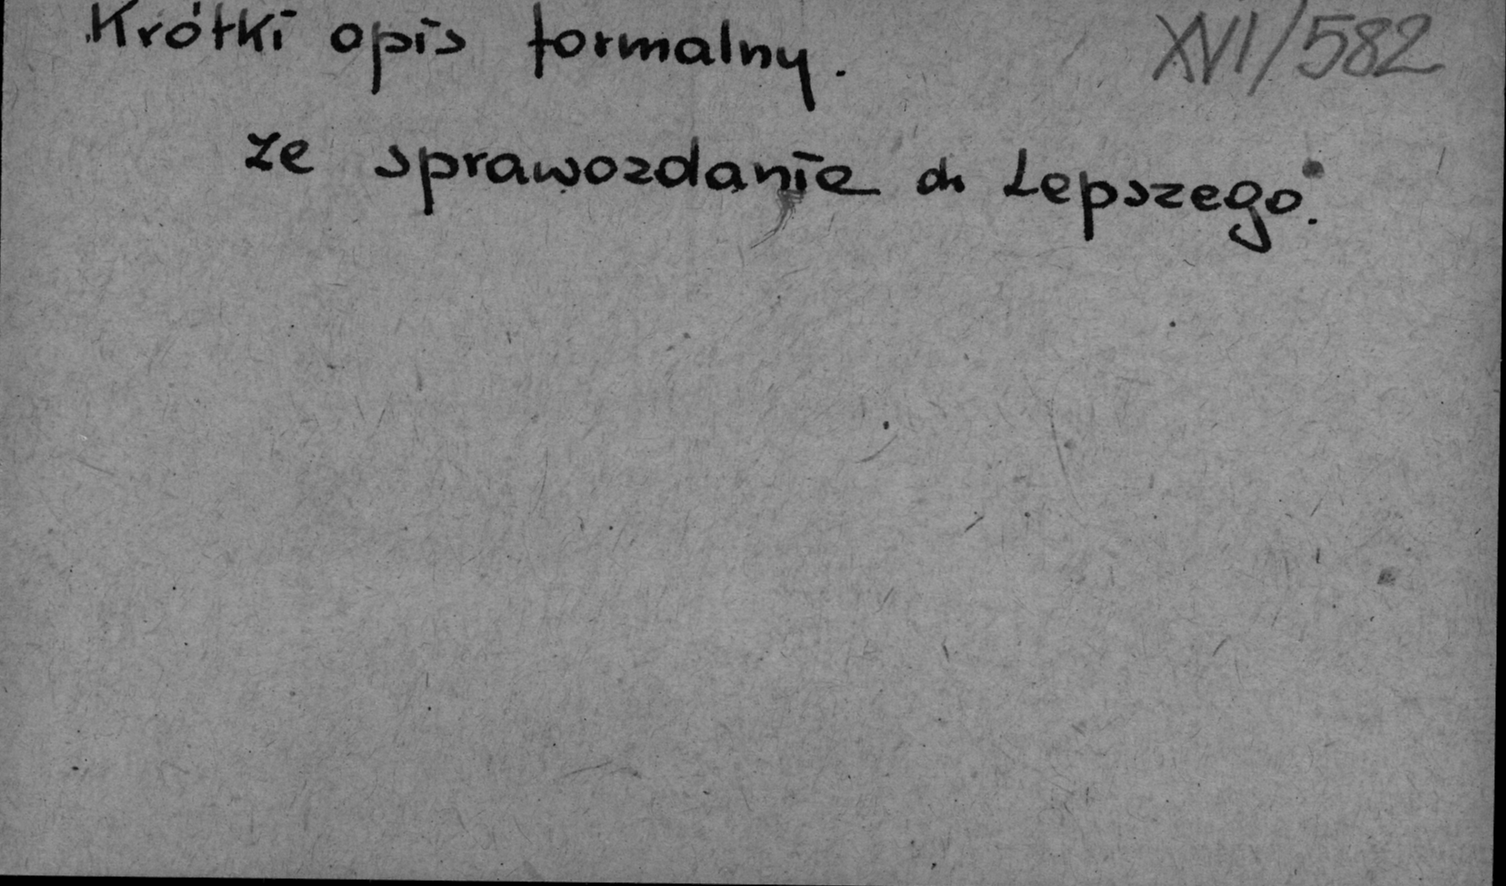 Krótki opis formalny. XVI/582
ze sprawozdanie dr Lepszego.